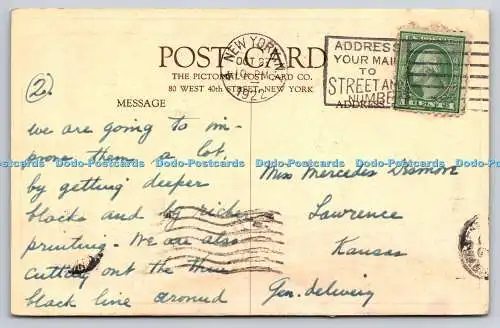 POST CARD
THE PICTORIAL POSTCARD CO.
80 WEST 40th STREET, NEW YORK
NEW YORK, N.Y.
OCT 27
10 PM
1922
ADDRESS
YOUR MAIL
TO
STREET AND
NUMBER
MESSAGE
ADDRESS
(2)
we are going to im-
prove them a lot
by getting deeper
blacks and by richer
printing. We are also
cutting out the thin
black line around
Miss Mercedes
Lawrence
Kansas
Gen. delivery
Dodo-Postcards Dodo-Postcards Dodo-Postcards Dodo-Postcards Dodo-Postcards Dodo-Postcards